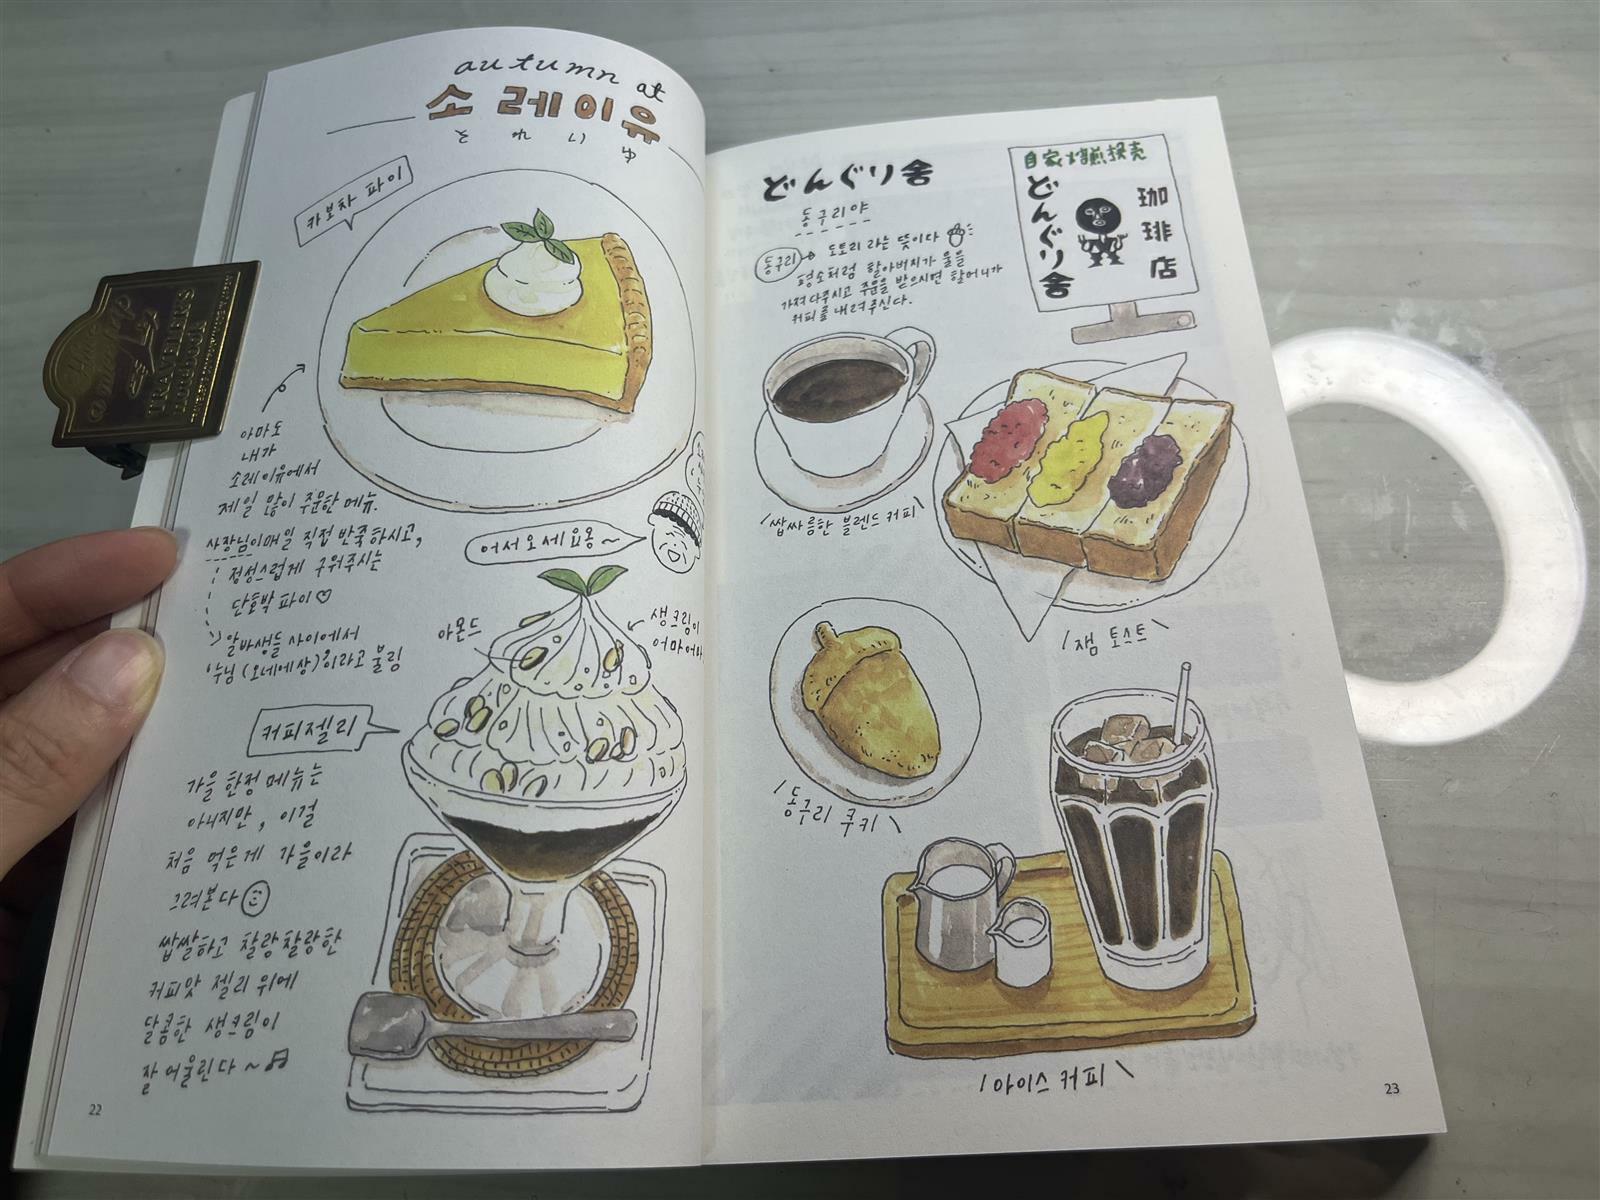 autumn at
소레이유
それいゆ
카보차 파이
아마도
내가
소레이유에서
제일 많이 주문한 메뉴.
사장님이 매일 직접 반죽하시고,
정성스럽게 구워주시는
단호박 파이♡
알바생들 사이에서
누님(오네에상)이라고 불림
어서오세요옹~
아몬드
생크림이
커피젤리
가을 한정 메뉴는
아니지만, 이걸
처음 먹은게 가을이라
그려본다
쌉쌀하고 찰랑찰랑한
커피맛 젤리 위에
달콤한 생크림이
잘 어울린다~♬
22
TRAVELER'S
notebook
どんぐり舎
동구리야
동구리→ 도토리 라는 뜻이다
평소처럼 할아버지가 물을
가져다주시고 주문을 받으시면 할머니가
커피를 내려주신다.
自家焙煎販売
どんぐり舎
珈琲店
쌉싸름한 블렌드 커피
잼 토스트
동구리 쿠키
아이스 커피
23